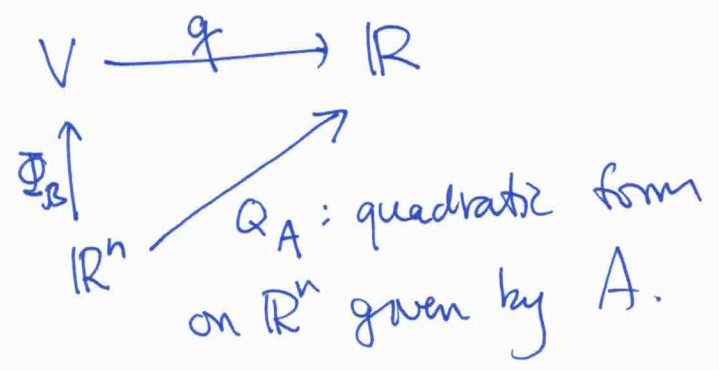 V q ℝ
Φ_B
ℝⁿ Q_A : quadratic form
on ℝⁿ given by A.